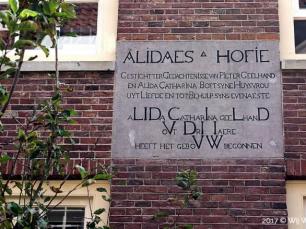 ALIDAES HOFJE
GESTIGHT TER GEDACHTENISSE VAN PIETER GEELHAND
EN ALIDA CATHARINA BOPTSYNE HUYSVROU
UYT LIEFDE EN TOT BEHULP SYNS EVENAESTE
ALIDA CATHARINA GEELHAND
OUT DRI IAERE
HEEFT HET GEBOUW BEGONNEN
2017 ©